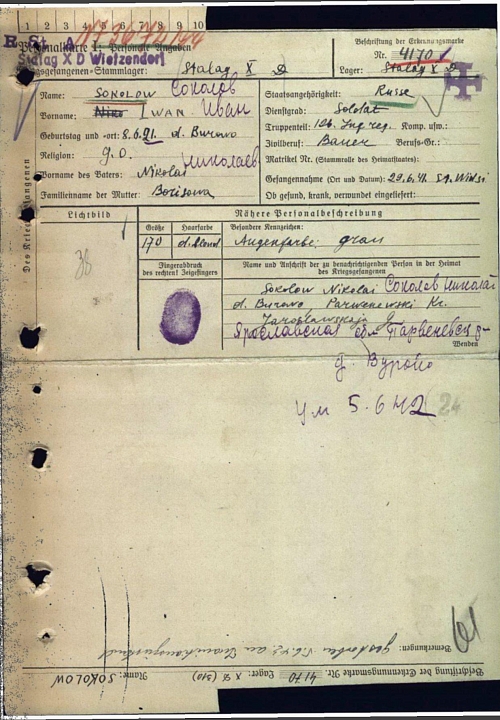 1 2 3 4 5 6 7 8 9 10
Personalkarte I: Personelle Angaben
Stalag X D Wietzendorf
Kriegsgefangenen-Stammlager: Stalag X D
Beschriftung der Erkennungsmarke
Nr. 4170
Lager: Stalag X D
Des Kriegsgefangenen
Name: SOKOLOW Соколов
Vorname: Niko IWAN Иван
Geburtstag und -ort: 8.6.21. d. Burowo
Religion: g.o.
Vorname des Vaters: Nikolai Николаев
Familienname der Mutter: Borisowa
Staatsangehörigkeit: Russe
Dienstgrad: Soldat
Truppenteil: 126. Ing reg. Komp. usw.:
Zivilberuf: Bauer Berufs-Gr.:
Matrikel Nr. (Stammrolle des Heimatstaates):
Gefangennahme (Ort und Datum): 29.6.41.
Ob gesund, krank, verwundet eingeliefert:
Lichtbild
38
Nähere Personalbeschreibung
Größe Haarfarbe Besondere Kennzeichen:
170 d.blond Augenfarbe: grau
Fingerabdruck
des rechten! Zeigefingers
Name und Anschrift der zu benachrichtigenden Person in der Heimat
des Kriegsgefangenen
Sokolow Nikolai Соколов Николай
d. Burowo Parwenewski Kr.
Jaroslawskaja g.
Ярославская
Wenden
д. Вурово
Ум 5.6 42 24
61
Bemerkungen: gestorben 5.6.42 im
Beschriftung der Erkennungsmarke Nr. 4170 Lager: X D (310) Name: SOKOLOW